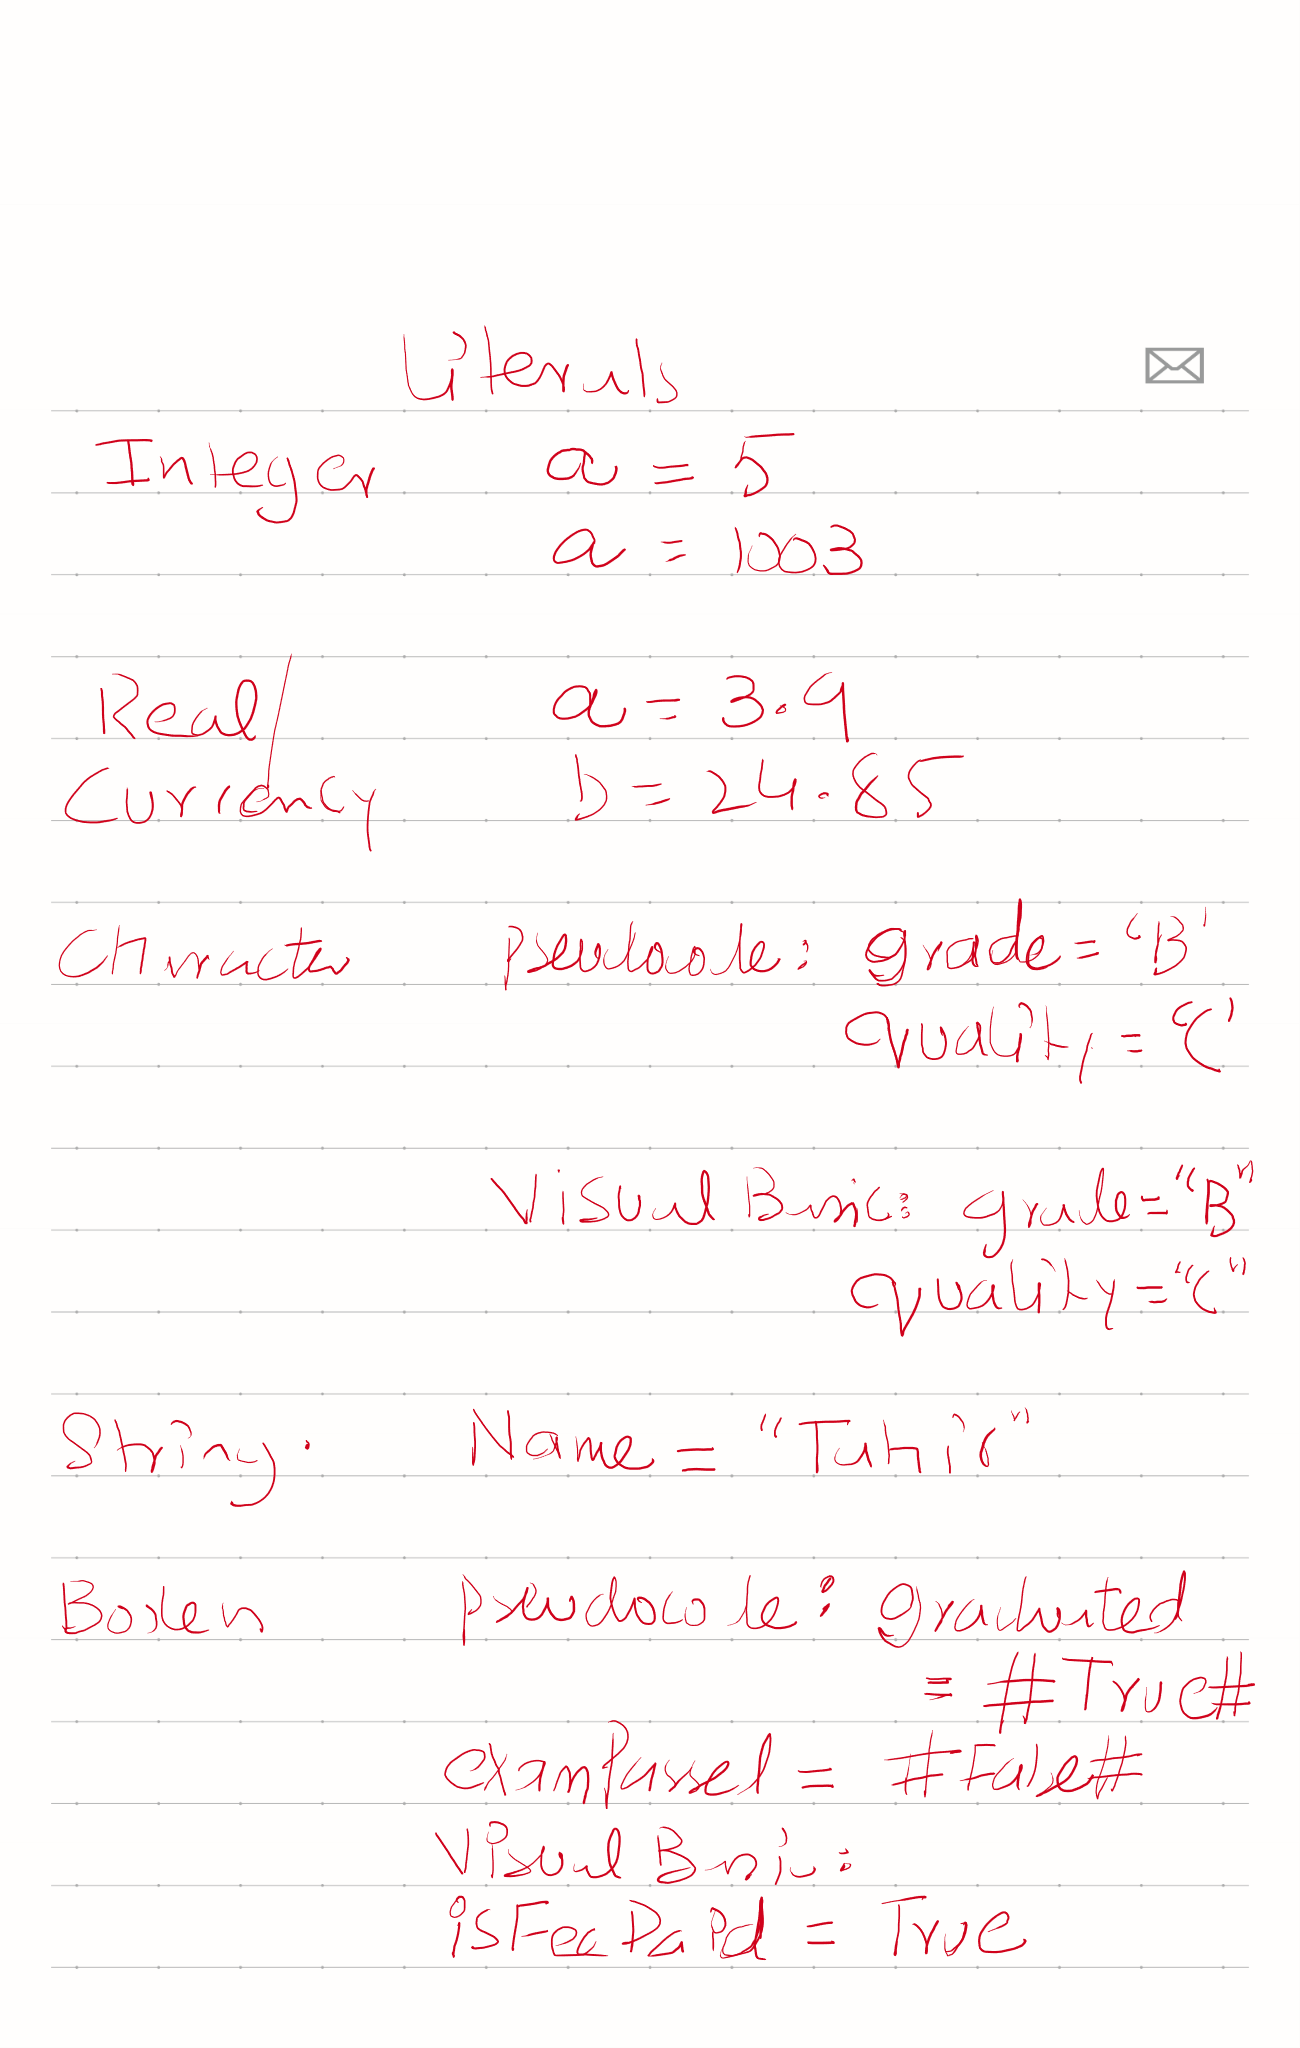 Literals
Integer a = 5
a = 1003
Real/ a = 3.9
Currency b = 24.85
Character Pseudocode: grade = 'B'
quality = 'C'
Visual Basic: grade = "B"
quality = "C"
String. Name = "Tahir"
Boolen Pseudocode: graduated
= #True#
examPassed = #False#
Visual Basic:
isFeePaid = True